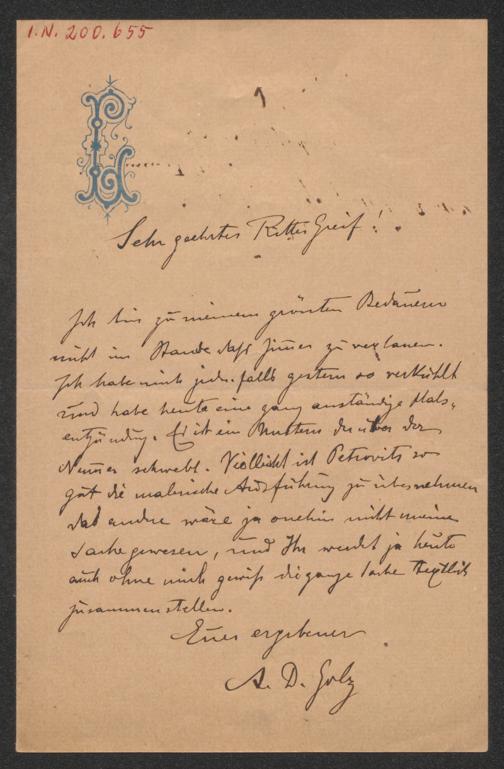 I.N. 200.655
Sehr geehrter Ritter Greif!
Ich bin zu meinem grössten Bedauern
nicht im Stande das Zimmer zu verlassen.
Ich habe mich jedenfalls gestern so verkühlt
und habe heute eine ganz anständige Hals-
entzündung. Es ist ein Unstern der über der
Nummer schwebt. Vielleicht ist Petrovits so
gut die malerische Ausführung zu übernehmen
das andre wäre ja onehin nicht meine
Sache gewesen, und Ihr werdet ja heute
auch ohne mich gewiß die ganze Sache textlich
zusammenstellen.
Euer ergebener
A. D. Golz